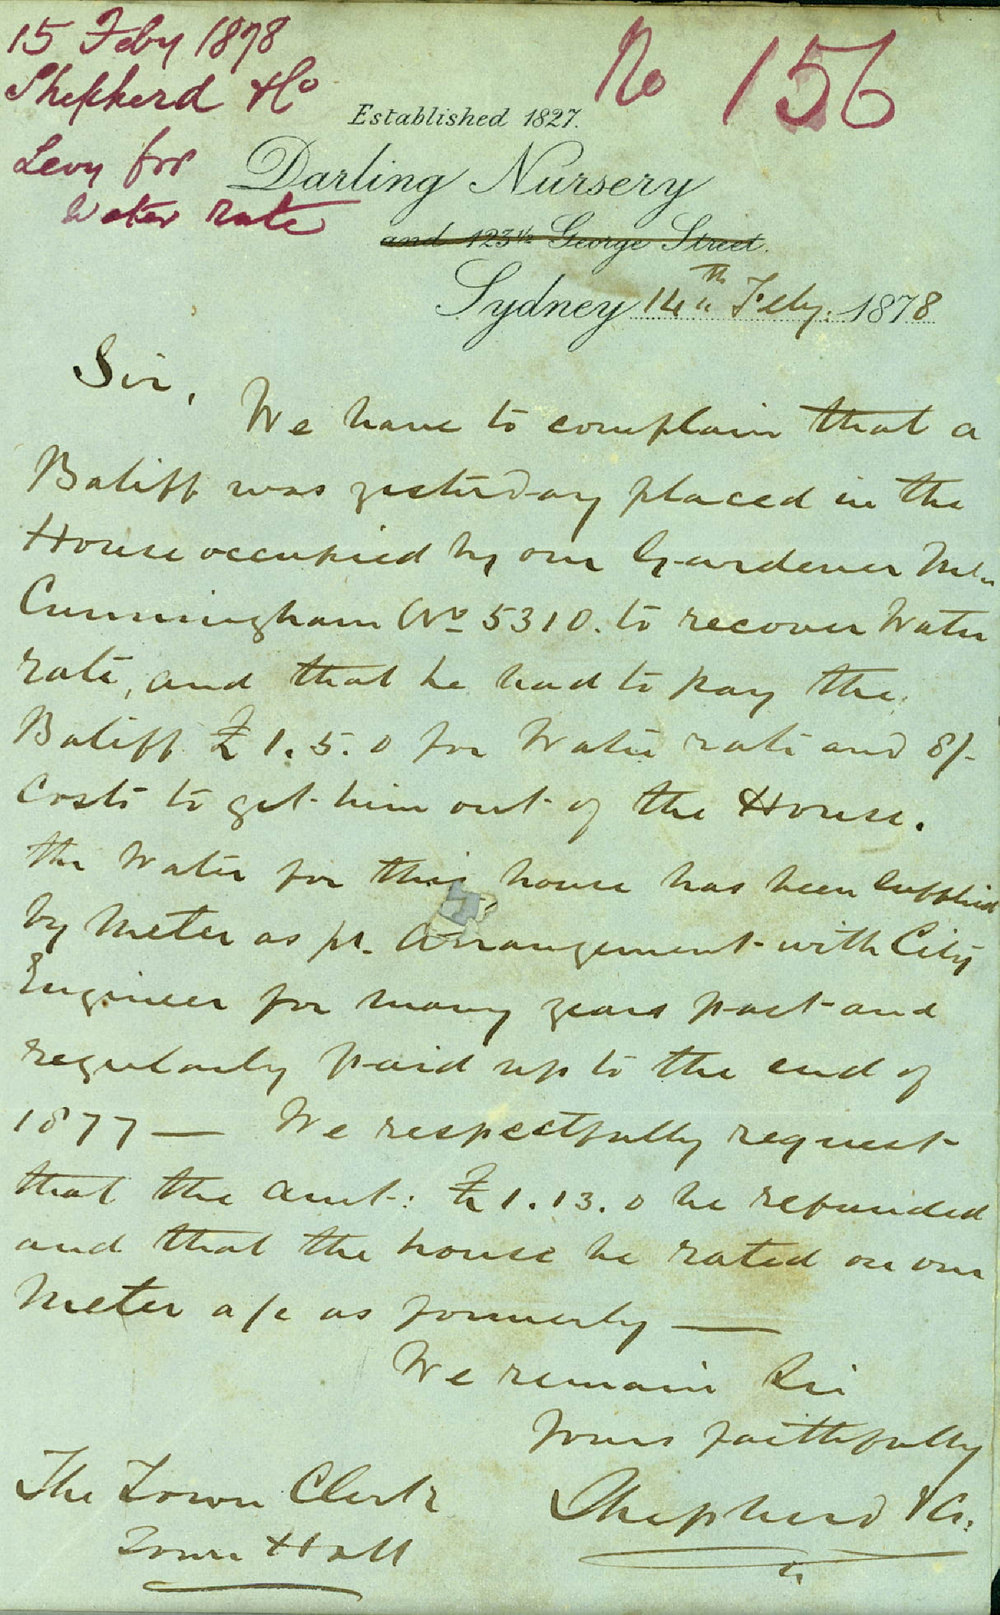 15 Feby 1878
Shepherd & Co
Levy for
Water rate
No 156
Established 1827.
Darling Nursery
and 123½ George Street.
Sydney 14th Feby. 1878
Sir,
We have to complain that a
Baliff was yesterday placed in the
House occupied by our Gardener Mr.
Cunningham No 5310. to recover Water
rate, and that he had to pay the
Baliff £1.5.0 for Water rate and 8/-
Costs to get him out of the House.
the Water for this house has been supplied
by Meter as pr. Arrangement with City
Engineer for many years past and
regularly paid up to the end of
1877 — We respectfully request
that the amt: £1.13.0 be refunded
and that the house be rated on our
Meter a/c as formerly —
We remain Sir
Yours faithfully
Shepherd & Co.
The Town Clerk
Town Hall